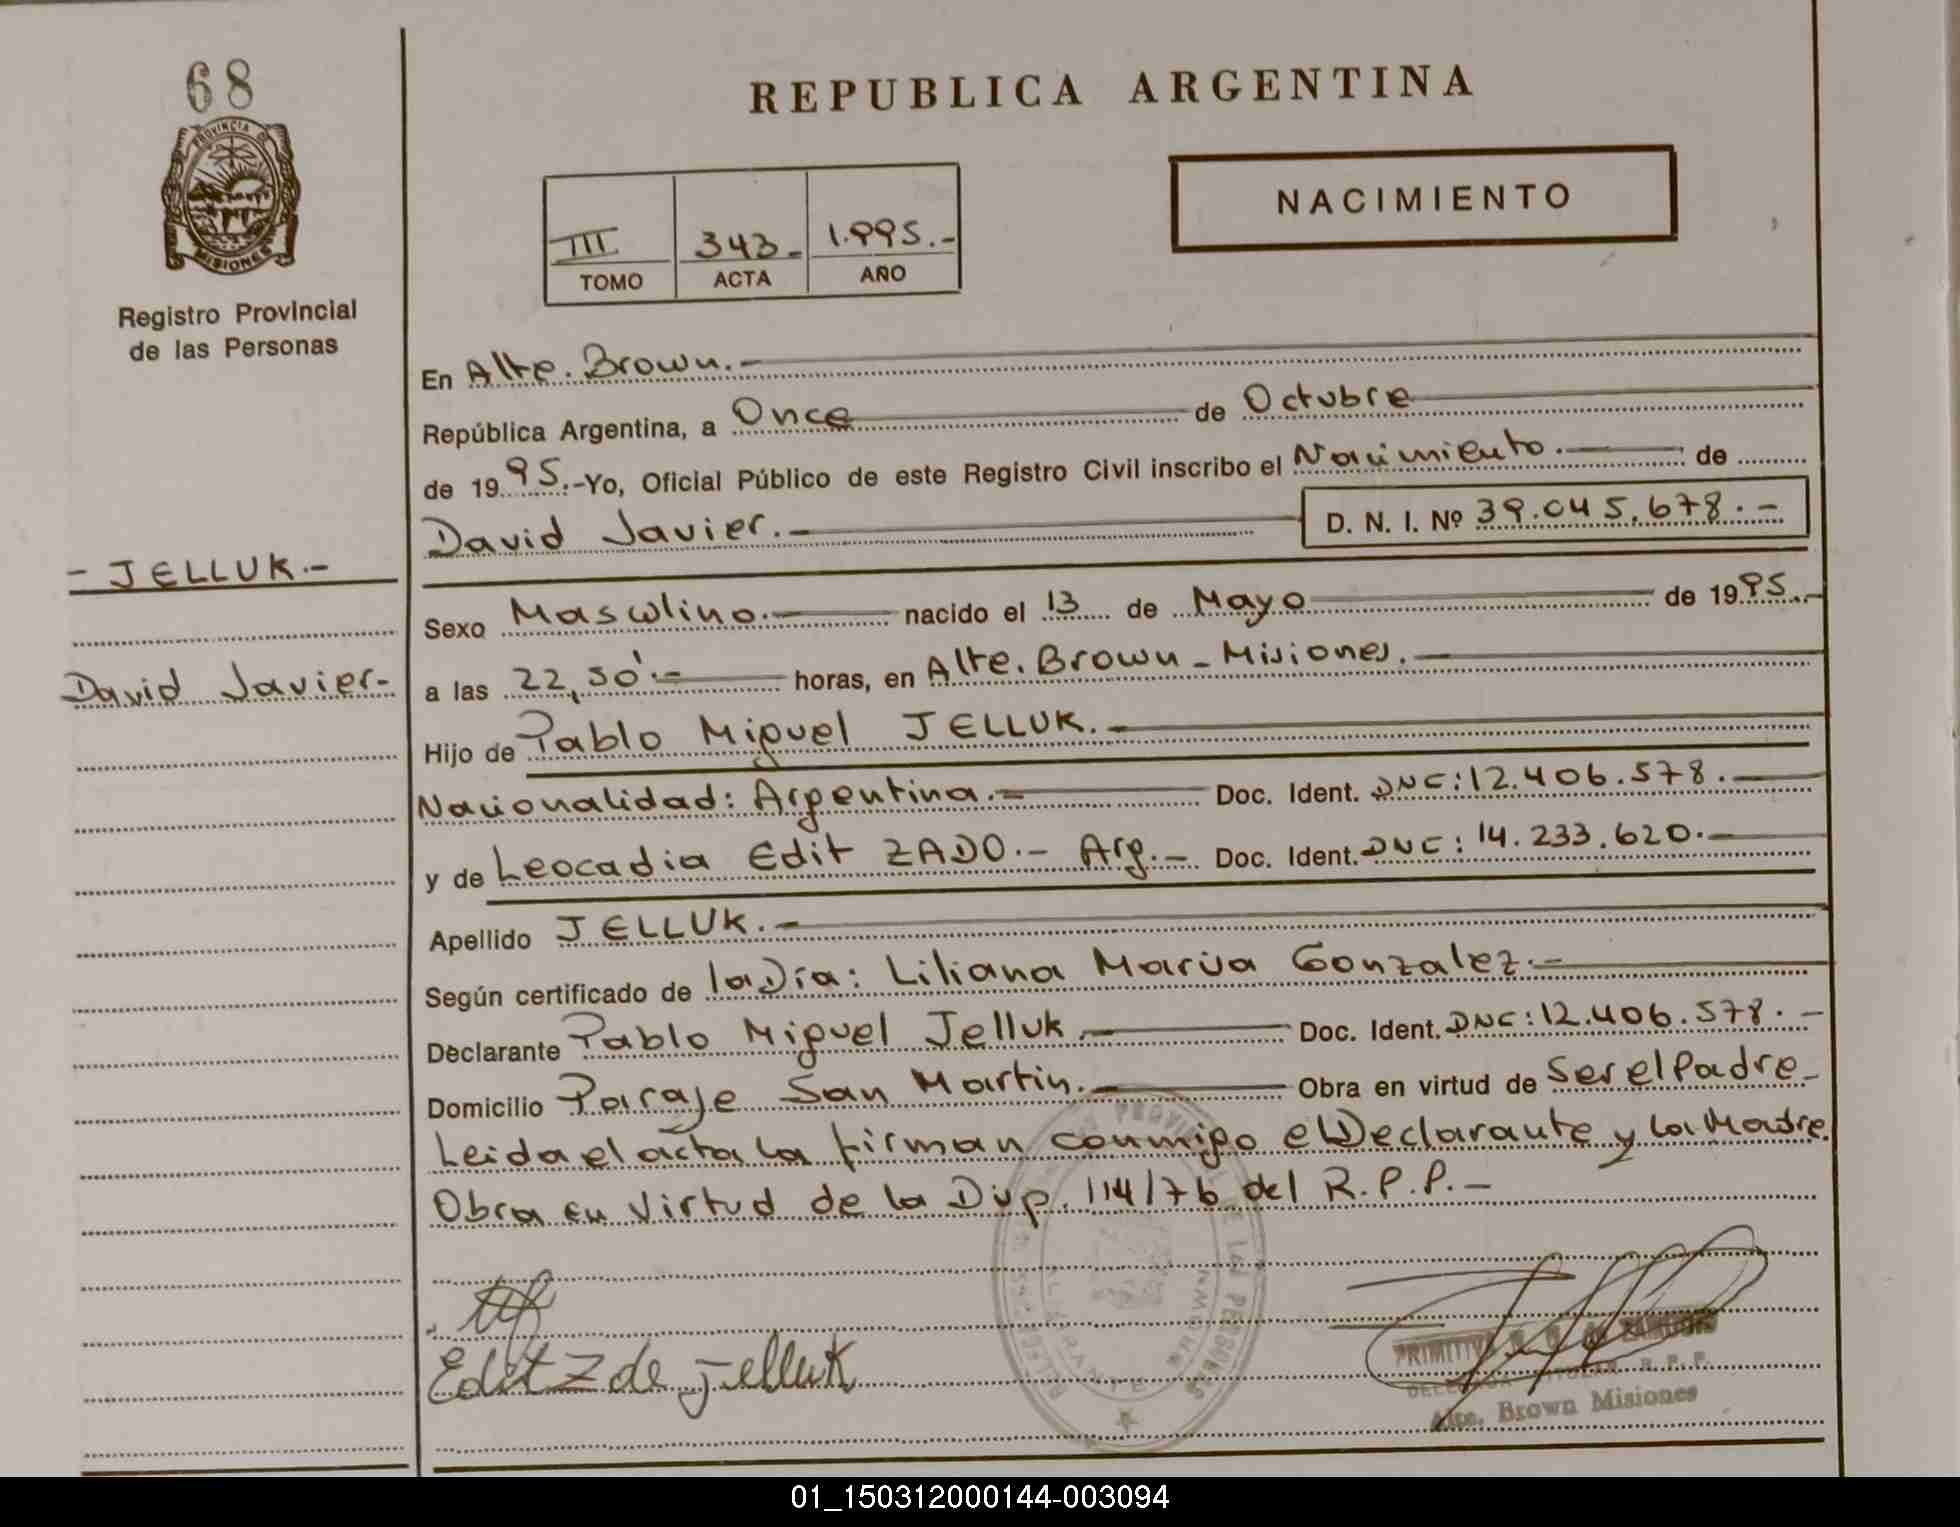 68
PROVINCIA DE
MISIONES
Registro Provincial
de las Personas
- JELLUK.-
David Javier-
REPUBLICA ARGENTINA
III 343- 1.995.-
TOMO ACTA AÑO
NACIMIENTO
En Alte. Brown.-
República Argentina, a Once de Octubre
de 1995.-Yo, Oficial Público de este Registro Civil inscribo el Nacimiento.- de
David Javier.- D. N. I. Nº 39.045.678.-
Sexo Masculino.- nacido el 13 de Mayo de 1995.-
a las 22,30'.- horas, en Alte. Brown - Misiones.-
Hijo de Pablo Miguel JELLUK.-
Nacionalidad: Argentina.- Doc. Ident. DNI: 12.406.578.-
y de Leocadia Edit ZADO.- Arg.- Doc. Ident. DNI: 14.233.620.-
Apellido JELLUK.-
Según certificado de la Dra: Liliana Maria Gonzalez.-
Declarante Pablo Miguel Jelluk.- Doc. Ident. DNI: 12.406.578.-
Domicilio Paraje San Martin.- Obra en virtud de Ser el Padre-
Leida el acta la firman conmigo el Declarante y la Madre.
Obra en Virtud de la Disp. 114/76 del R.P.P.-
Edit Z de Jelluk
ALMIRANTE BROWN
Alte. Brown Misiones
01_150312000144-003094